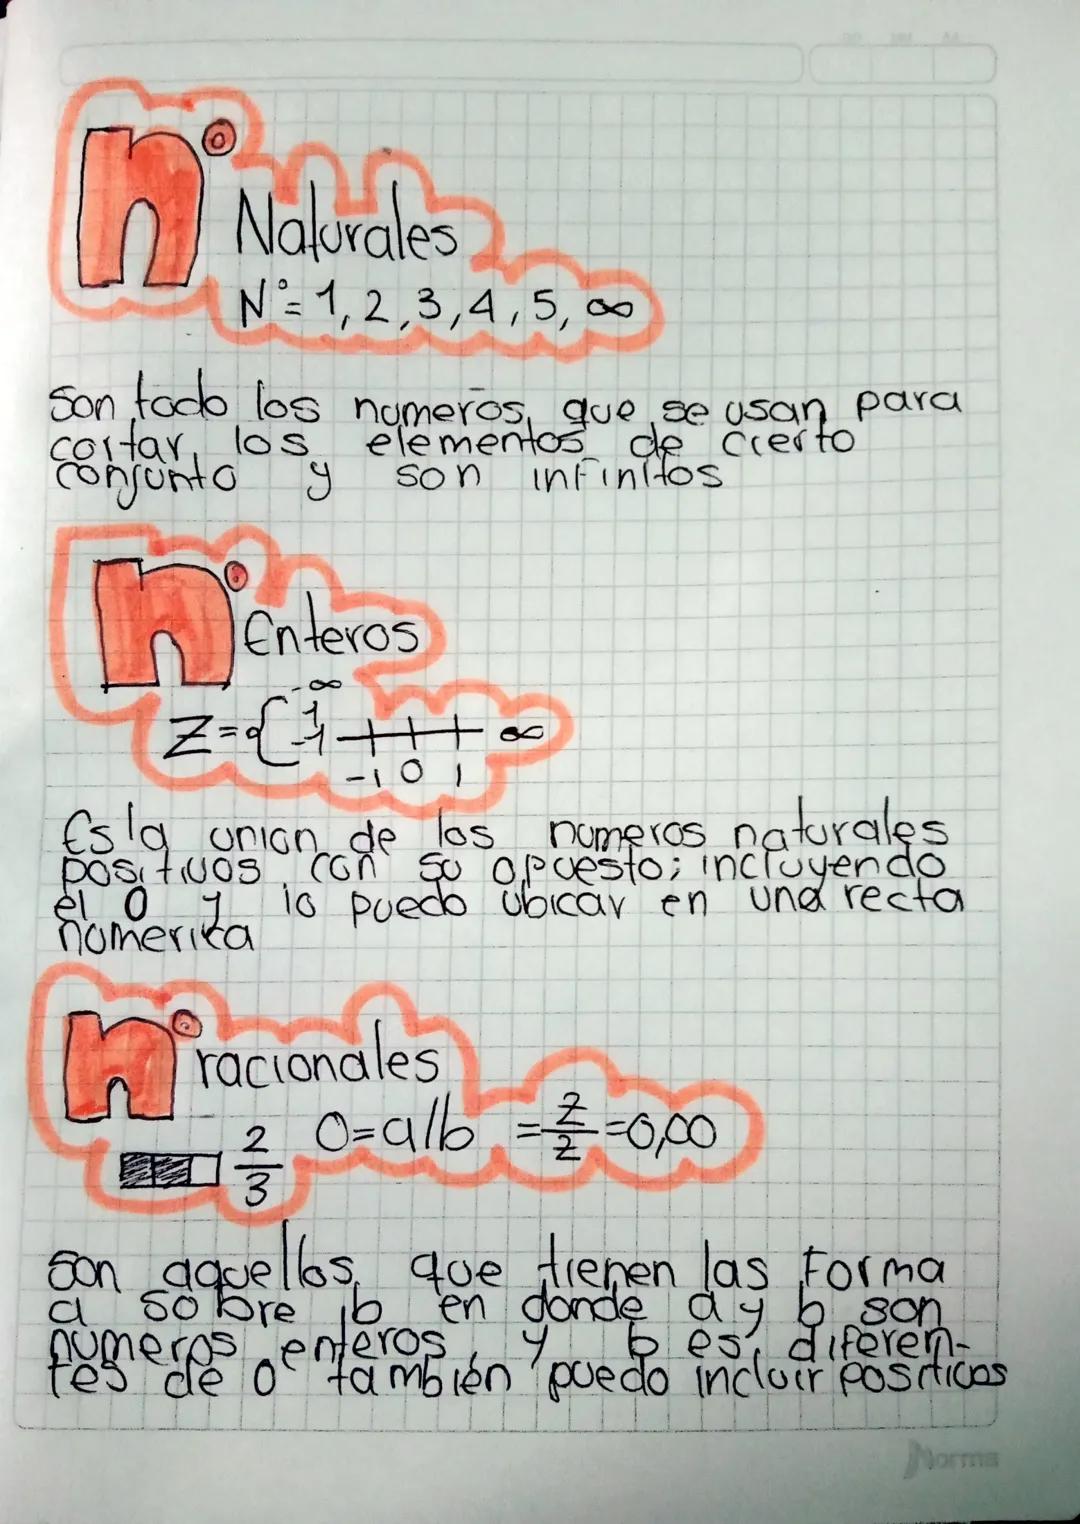 n° Naturales
N°= 1, 2, 3, 4, 5, ∞
Son todo los numeros que se usan para
contar los elementos de cierto
conjunto y son infinitos
n° Enteros
-∞
Z={ 1 -1 ∞
-1 0 1
Es la union de los numeros naturales
positivos con su opuesto; incluyendo
el 0 y lo puedo ubicar en una recta
numerica
n° racionales
2/3 Q=a/b = Z/Z =0,00
son aquellos que tienen las forma
a sobre b en donde a y b son
numeros enteros y b es diferen-
tes de 0 también puedo incluir positivos
Norma